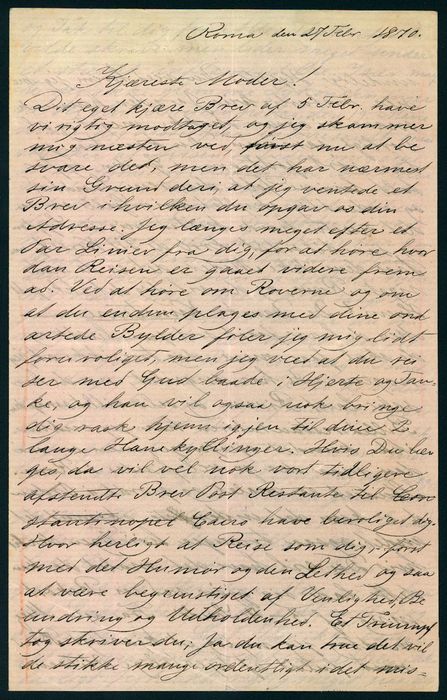 Roma den 27 Febr. 1870.
Kjæreste Moder!
Dit eget kjære Brev af 5 Febr. have
vi rigtig modtaget, og jeg skammer
mig næsten ved først nu at be
svare det, men det har nærmest
sin Grund deri, at jeg ventede et
Brev i hvilken du opgav os din
Adresse. Jeg længes meget efter et
Par Linier fra dig, for at høre hvor
dan Reisen er gaaet videre frem
ad. Ved at høre om Røverne og om
at du endnu plages med dine ond
artede Bylder føler jeg mig lidt
foruroliget, men jeg veed at du rei
ser med Gud baade i Hjerte og Tan
ke, og han vil ogsaa nok bringe
dig rask hjem igjen til dine 2
lange Hanekyllinger. Hvis Du læn
ges da vil vel nok vort tidligere
afsendte Brev Post Restante til Con
stantinopel Cairo have beroliget dig.
Hvor herligt at Reise som dig, først
med det Humør og den Lethed og saa
at være begunstiget af Venlighed, Be
undring og Udholdenhed. Et Triumf
tog skriver du; Ja du kan troe det vil
de stikke mange ordentligt i det mis-